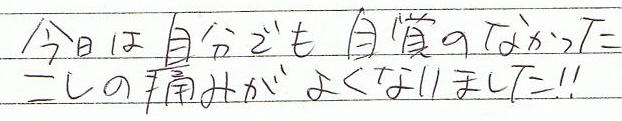 今日は自分でも自覚のなかった
こしの痛みがよくなりました!!